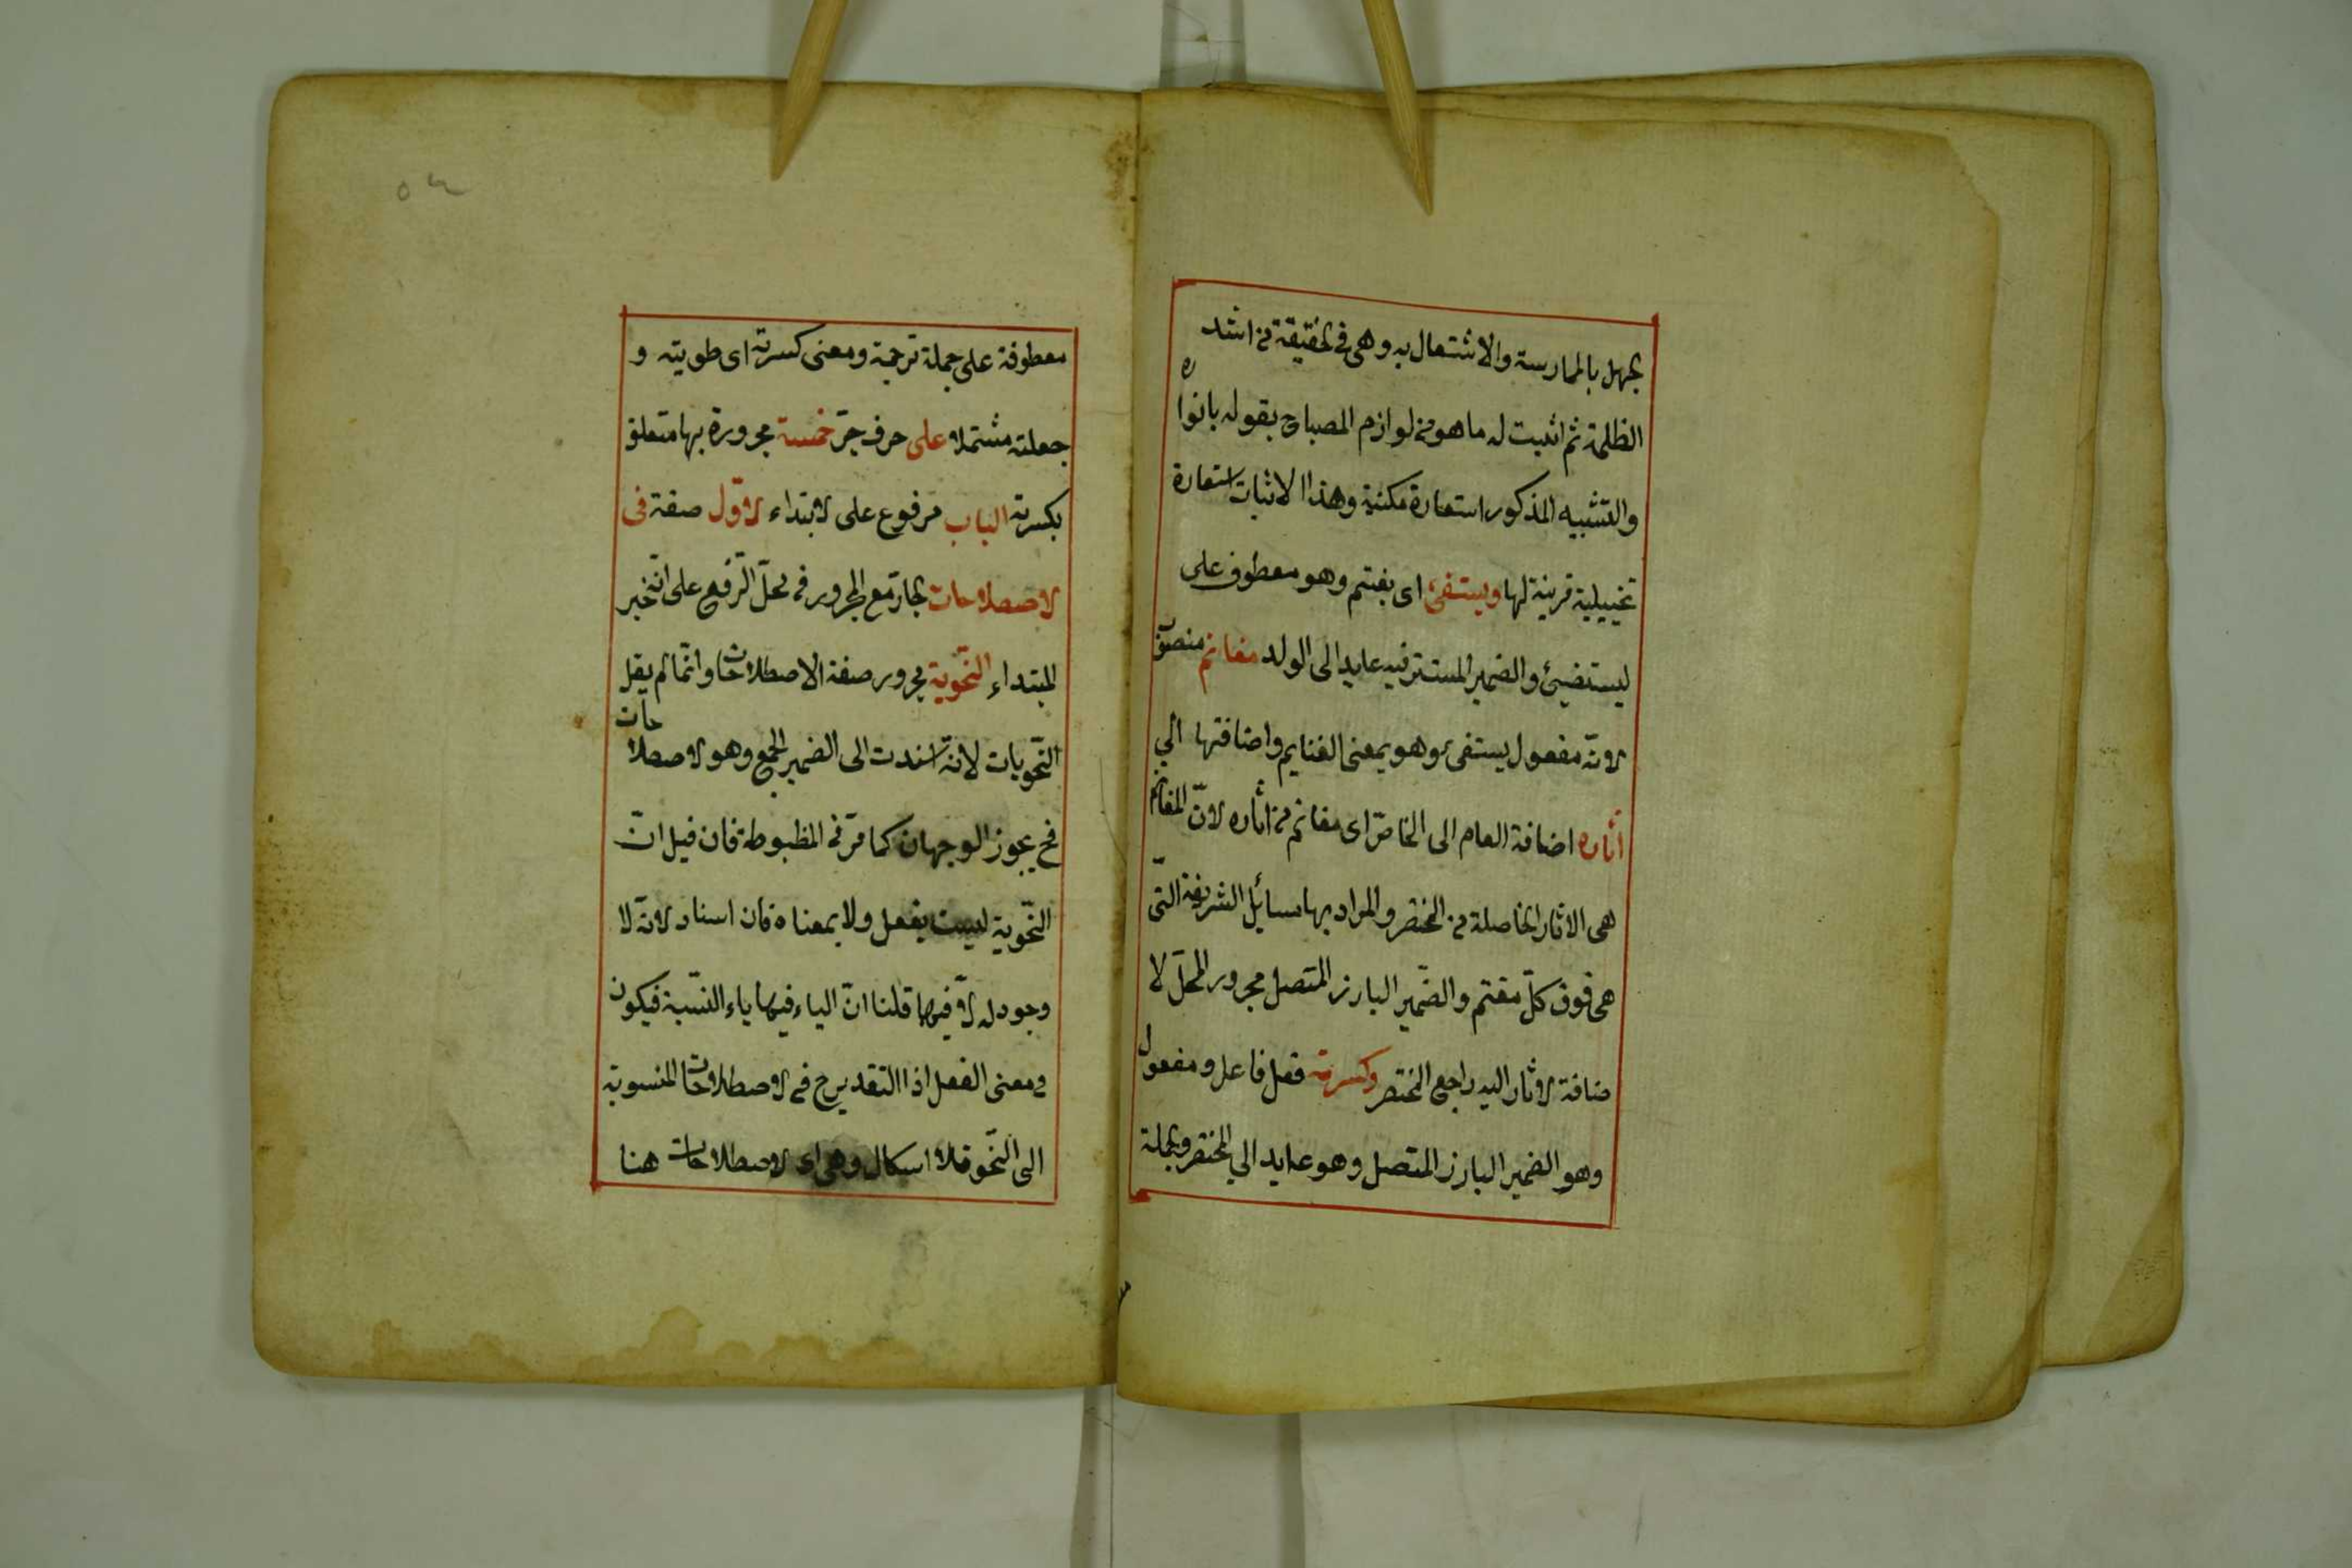 لجهل بالممارسة والاشتعال به وهى فى لحقيقة من اشد
الظلمة ثم اثبت له ما هو من لوازم المصباح بقوله بانواره
والتشبيه المذكور استعارة مكنية وهذا الاثبات استعارة
تخييلية قرينة لها ويستفئ اى يغتنم وهو معطوف على
ليستضيئ والضمير المستتر فيه عايد الى الولد مغانم منصوب
لانه مفعول يستفئ وهو بمعنى الغنايم واضافتها الي
آثاره اضافة العام الى الخاصّ اى مغانم من اثاره لانّ المغانم
هى الاثار الحاصلة من المختصر والمراد بها مسائل الشريفة التّى
هى فوق كلّ مغتنم والضّمير البارز المتّصل مجرور المحلّ لا
ضافة لاثار اليه راجع المختصر وكسرته فعل فاعل ومفعول
وهو الضمير البارز المتصل وهو عايد الي المختصر ولجملة
٥٤
معطوفة على جملة ترجمة ومعنى كسرته اى طويته و
جعلته مشتملا على حرف جرّ خمسة مجرورة بها متعلق
بكسرته الباب مرفوع على لابتداء لاوّل صفة فى
لاصطلاحات لجارّ مع المجرور فى محلّ الرّفع على انّه خبر
المبتداء النّحويّة مجرور صفة الاصطلاحات وانّما لم يقل
النّحويات لانّه اسندت الى الضمير الجمع وهو لاصطلاحات
فح يجوز الوجهان كما مرّ فى المظبوطة فان قيل انّ
النّحوية ليست بفعل ولا بمعناه فان اسناد لانّه لا
وجود له لاّ فيهما قلنا انّ الياء فيها ياء النّسبة فيكون
فى معنى الفعل اذا التقدير ح فى لاصطلاحات المنسوبة
الى النّحو فلا اسكال وهى اى لاصطلاحات هنا